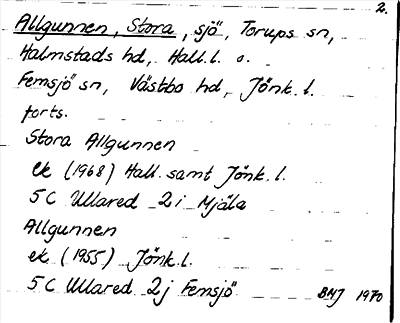 2.
Allgunnen, Stora, sjö, Torups sn,
Halmstads hd, Hall.l. o.
Femsjö sn, Västbo hd, Jönk.l.
forts.
Stora Allgunnen
ek (1968) Hall. samt Jönk.l.
5C Ullared 2i Mjäla
Allgunnen
ek (1955) Jönk.l.
5C Ullared 2j Femsjö
BMJ 1970